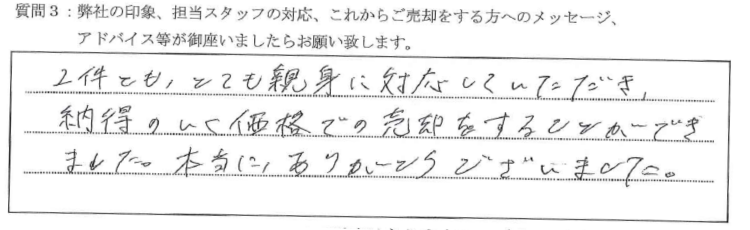 質問3：弊社の印象、担当スタッフの対応、これからご売却をする方へのメッセージ、
アドバイス等が御座いましたらお願い致します。
2件とも、とても親身に対応していただき、
納得のいく価格での売却をすることができ
ました。本当に、ありがとうございました。